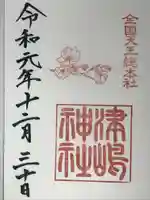 全国天王総本社
津嶋
神社
令和元年十二月三十日